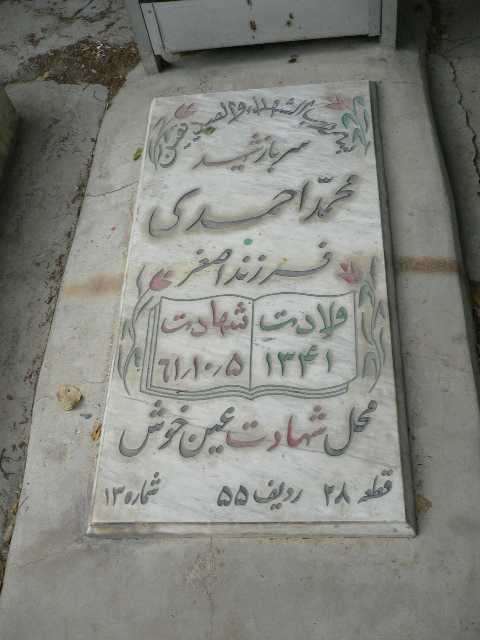 بسم رب الشهداء و الصدیقین
سرباز شهید
محمد احمدی
فرزند اصغر
ولادت شهادت
۱۳۴۱ ۶۱٫۱۰٫۵
محل شهادت عین خوش
قطعه ۲۸ ردیف ۵۵ شماره ۱۳